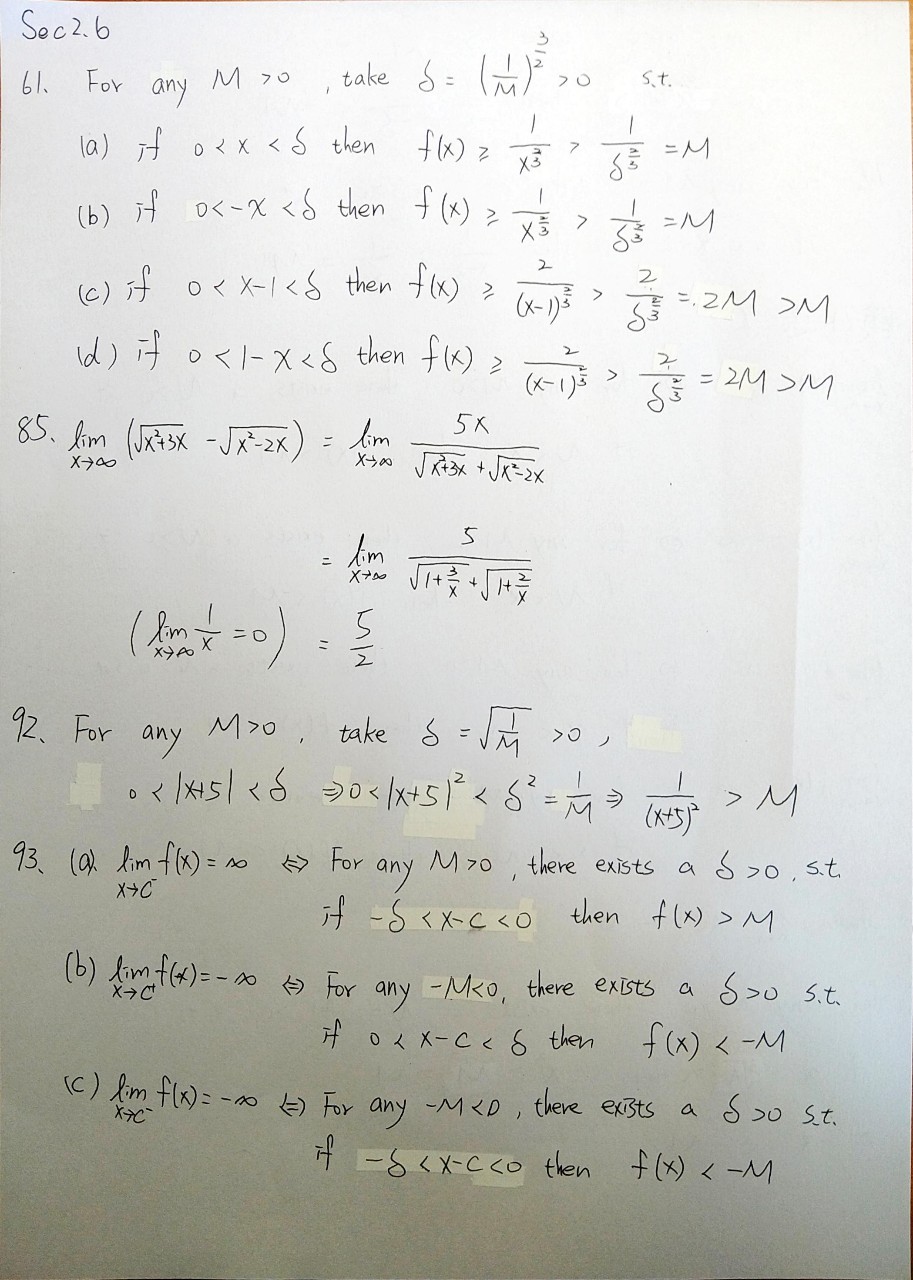 Sec 2.6
61. For any M > 0 , take δ = (1/M)^{3/2} > 0 s.t.
(a) if 0 < x < δ then f(x) ≥ 1/x^{2/3} > 1/δ^{2/3} = M
(b) if 0 < -x < δ then f(x) ≥ 1/x^{2/3} > 1/δ^{2/3} = M
(c) if 0 < x-1 < δ then f(x) ≥ 2/(x-1)^{2/3} > 2/δ^{2/3} = 2M > M
(d) if 0 < 1-x < δ then f(x) ≥ 2/(x-1)^{2/3} > 2/δ^{2/3} = 2M > M
85. lim_{x→∞} (√(x²+3x) - √(x²-2x)) = lim_{x→∞} 5x/(√(x²+3x) + √(x²-2x))
= lim_{x→∞} 5/(√(1+3/x) + √(1+2/x))
(lim_{x→∞} 1/x = 0) = 5/2
92. For any M > 0 , take δ = √(1/M) > 0 ,
0 < |x+5| < δ ⇒ 0 < |x+5|² < δ² = 1/M ⇒ 1/(x+5)² > M
93. (a) lim_{x→c⁻} f(x) = ∞ ⇔ For any M > 0 , there exists a δ > 0 , s.t.
if -δ < x-c < 0 then f(x) > M
(b) lim_{x→c⁺} f(x) = -∞ ⇔ For any -M < 0, there exists a δ > 0 s.t.
if 0 < x-c < δ then f(x) < -M
(c) lim_{x→c⁻} f(x) = -∞ ⇔ For any -M < 0 , there exists a δ > 0 s.t.
if -δ < x-c < 0 then f(x) < -M